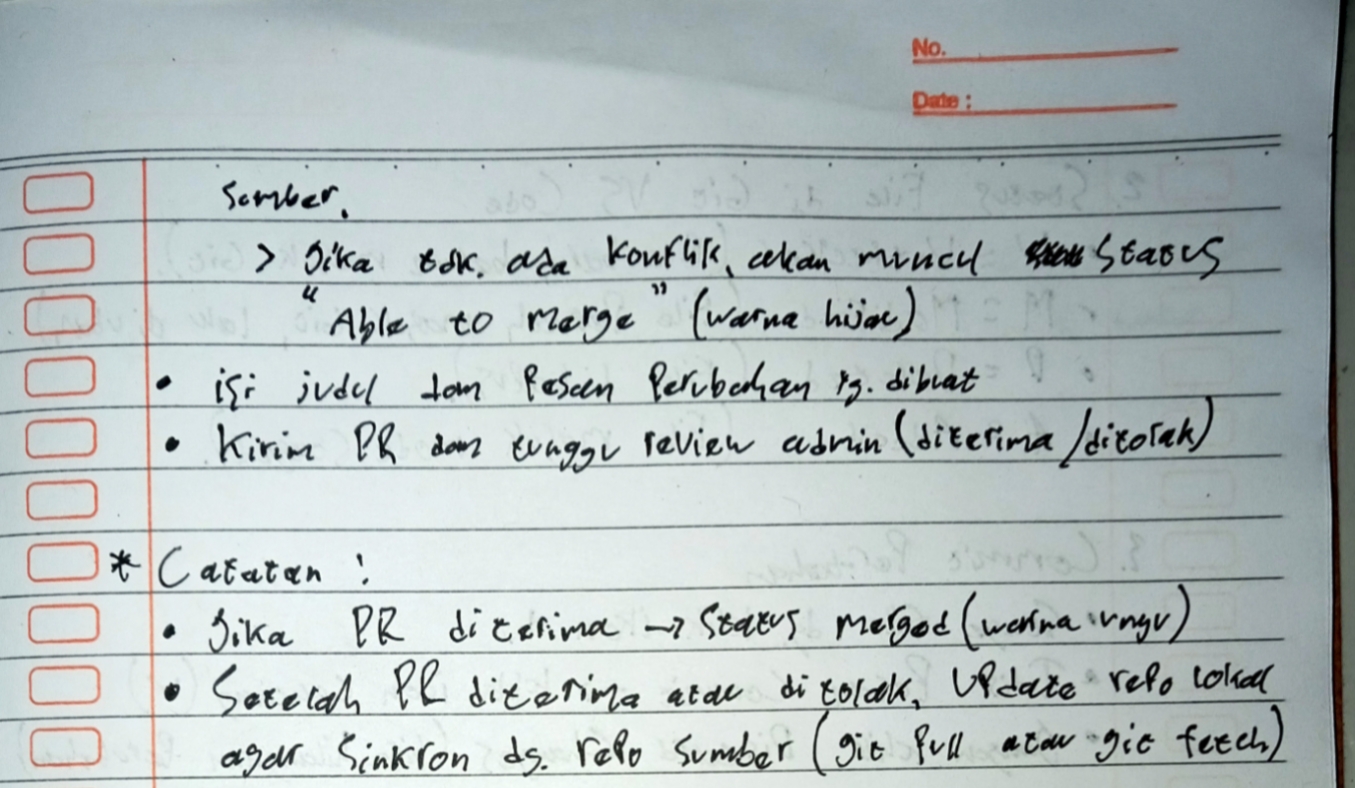 No.
Date :
Sumber.
> Jika tdk. ada konflik, akan muncul status
"Able to merge" (warna hijau)
• isi judul dan pesan perubahan yg. dibuat
• Kirim PR dan tunggu review admin (diterima/ditolak)
* Catatan :
• Jika PR diterima → status merged (warna ungu)
• Setelah PR diterima atau ditolak, update repo lokal
agar sinkron dg. repo sumber (git pull atau git fetch)